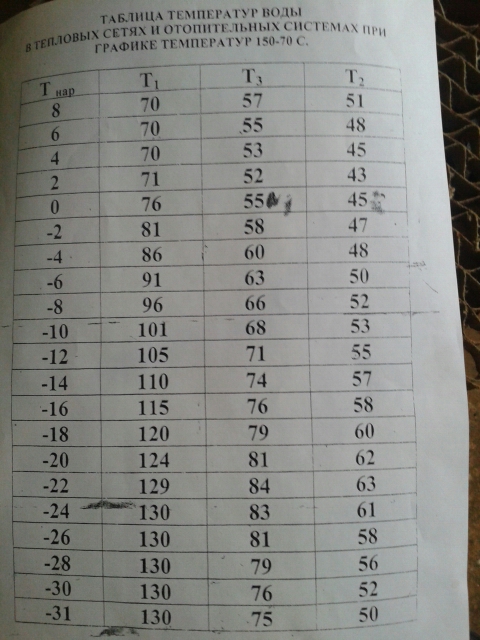 ТАБЛИЦА ТЕМПЕРАТУР ВОДЫ
В ТЕПЛОВЫХ СЕТЯХ И ОТОПИТЕЛЬНЫХ СИСТЕМАХ ПРИ
ГРАФИКЕ ТЕМПЕРАТУР 150-70 С.
Т нар Т1 Т3 Т2
8 70 57 51
6 70 55 48
4 70 53 45
2 71 52 43
0 76 55 45
-2 81 58 47
-4 86 60 48
-6 91 63 50
-8 96 66 52
-10 101 68 53
-12 105 71 55
-14 110 74 57
-16 115 76 58
-18 120 79 60
-20 124 81 62
-22 129 84 63
-24 130 83 61
-26 130 81 58
-28 130 79 56
-30 130 76 52
-31 130 75 50